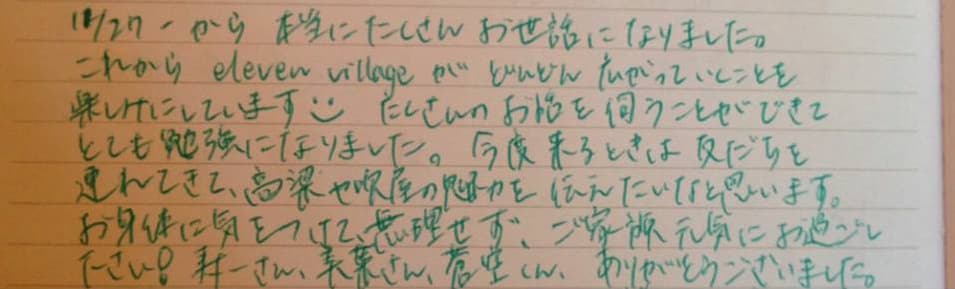 11/27-から 本当にたくさん お世話になりました。
これから eleven village が どんどん 広がっていくことを
楽しみにしています たくさんの お話を 伺うことができて
とても 勉強になりました。 今度 来るときは 友だちを
連れてきて、高梁や吹屋の魅力を 伝えたいなと思います。
お身体に気をつけて、無理せず、ご家族 元気に お過ごし
ださい! さん、 さん、蒼空くん、ありがとうございました。